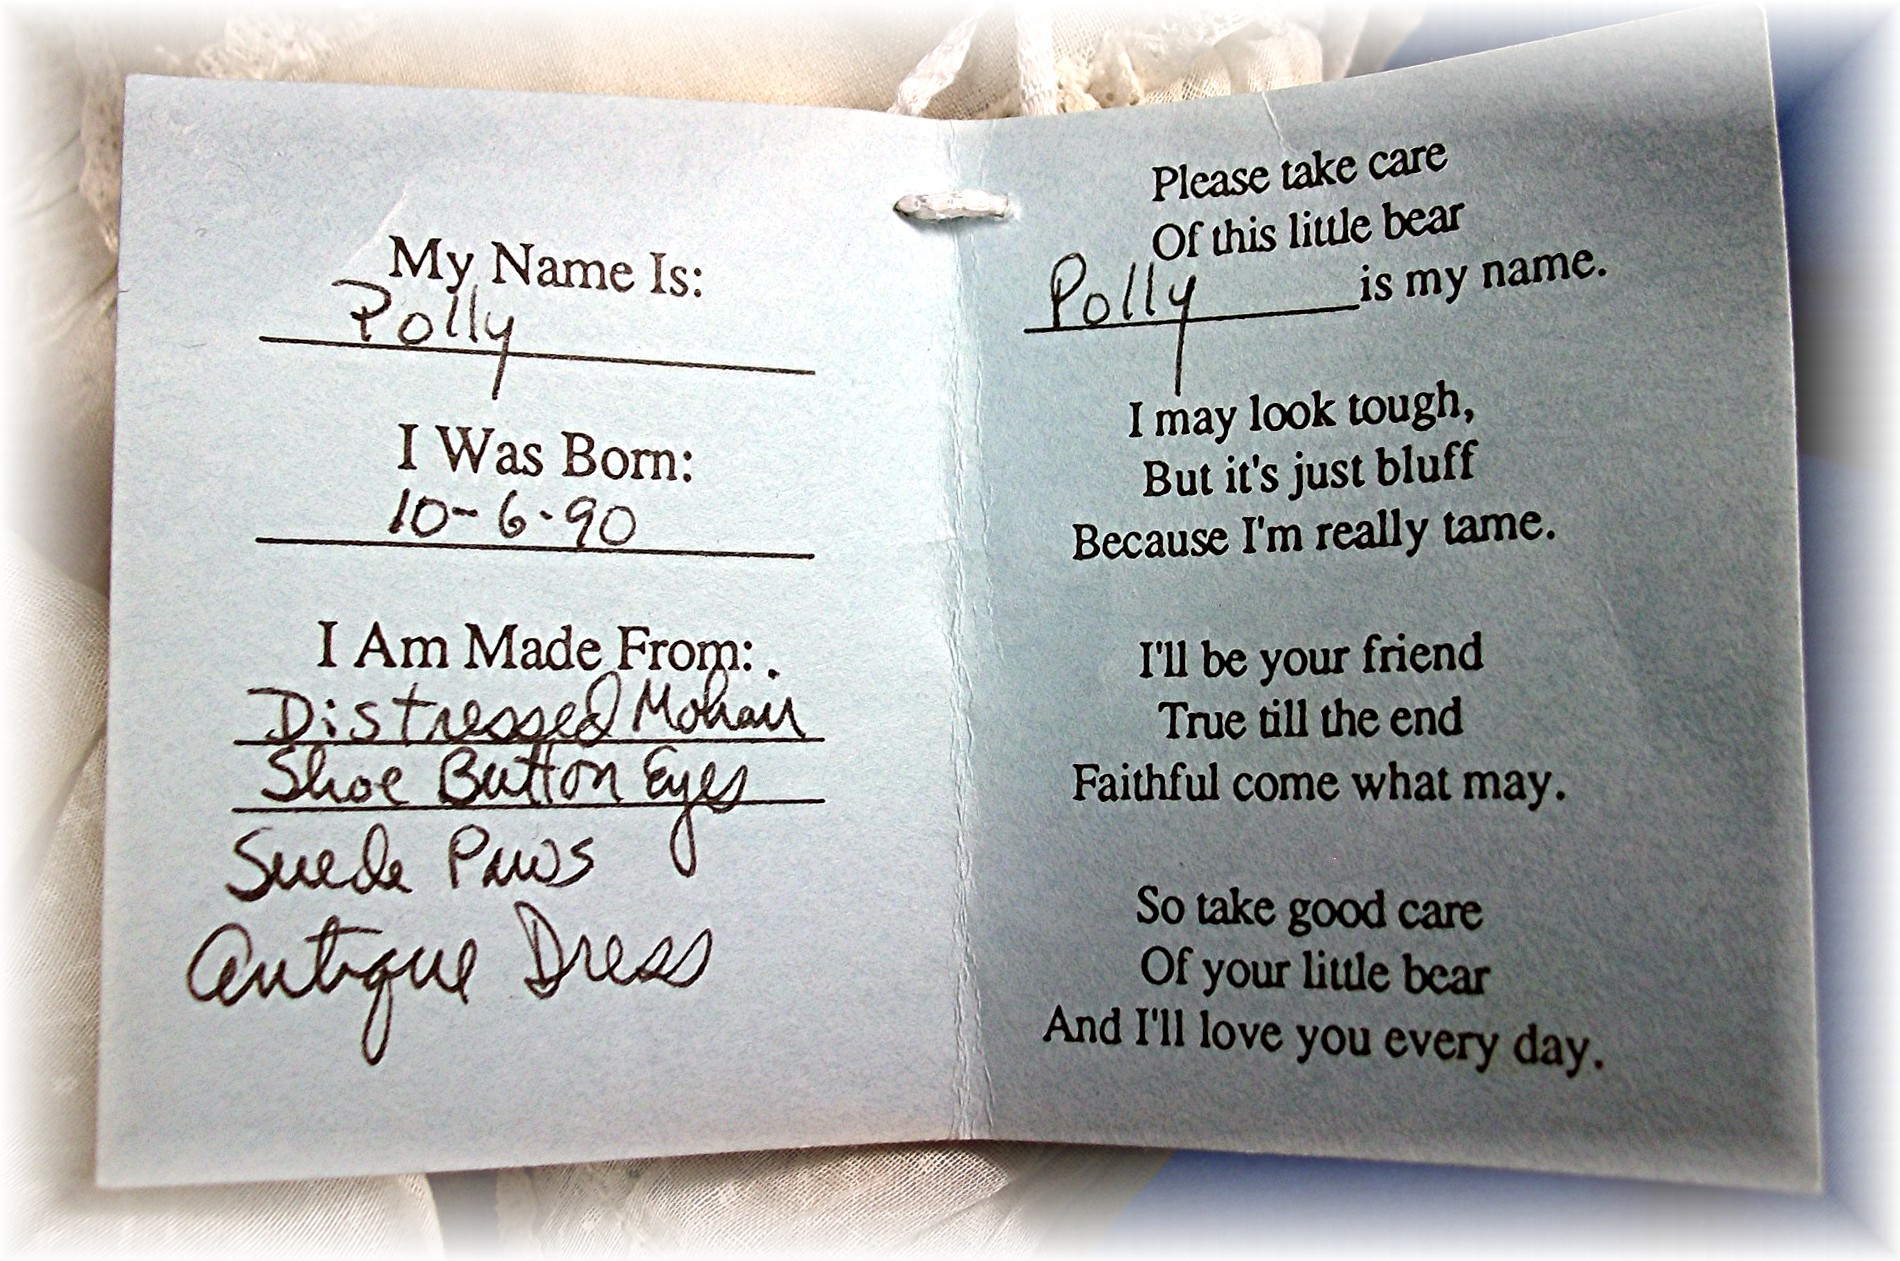 My Name Is:
Polly
I Was Born:
10-6-90
I Am Made From:
Distressed Mohair
Shoe Button Eyes
Suede Paws
Antique Dress
Please take care
Of this little bear
Polly is my name.
I may look tough,
But it's just bluff
Because I'm really tame.
I'll be your friend
True till the end
Faithful come what may.
So take good care
Of your little bear
And I'll love you every day.